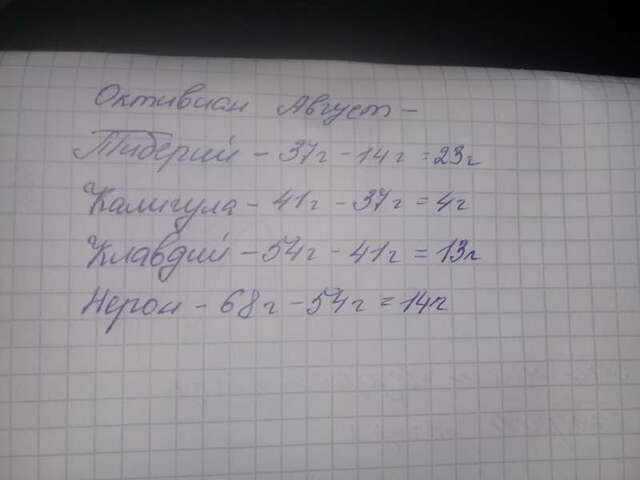 Октавиан Август -
Тиберий - 37г - 14г = 23г
Калигула - 41г - 37г = 4г
Клавдий - 54г - 41г = 13г
Нерон - 68г - 54г = 14г